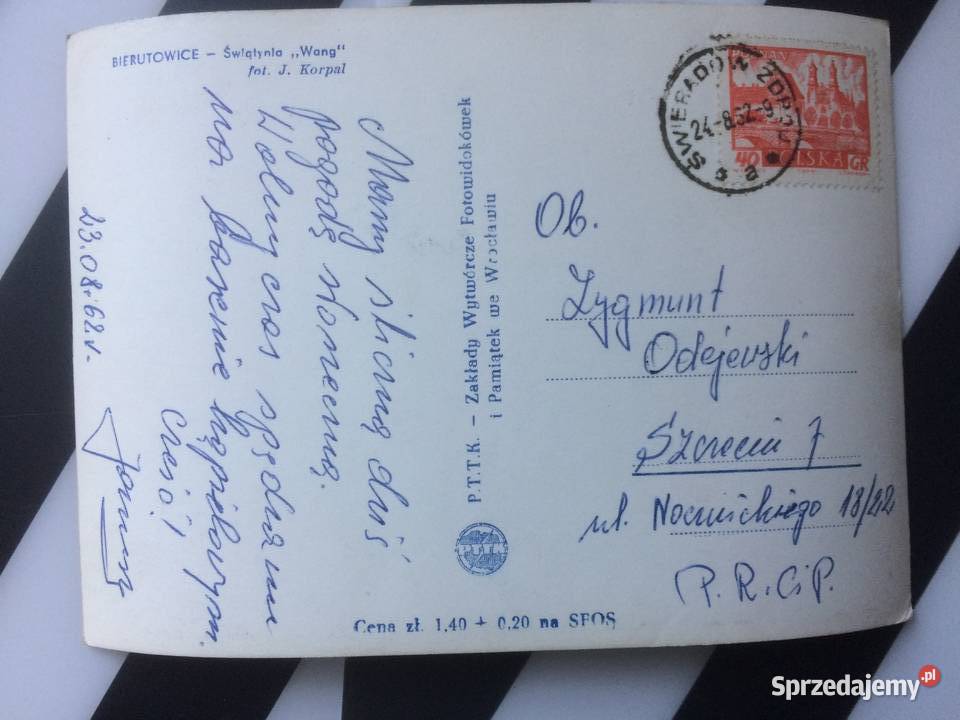 BIERUTOWICE – Świątynia „Wang"
fot. J. Korpal
Mamy śliczną dziś
pogodę słoneczną.
Wolny czas spędzam
na basenie kąpielowym.
Cześć!
23.08.62r.
P.T.T.K. – Zakłady Wytwórcze Fotowidokówek
i Pamiątek we Wrocławiu
Cena zł. 1,40 + 0,20 na SFOS
ŚWIERADÓW ZDRÓJ
24-8.62-9
a
POZNAŃ
40 POLSKA GR
Ob.
Zygmunt
Odejewski
Szczecin 7
ul. 18/22
P.R.CiP.
Sprzedajemy.pl